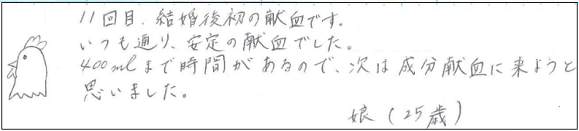 11回目、結婚後初の献血です。
いつも通り、安定の献血でした。
400mlまで時間があるので、次は成分献血に来ようと
思いました。
娘（25歳）